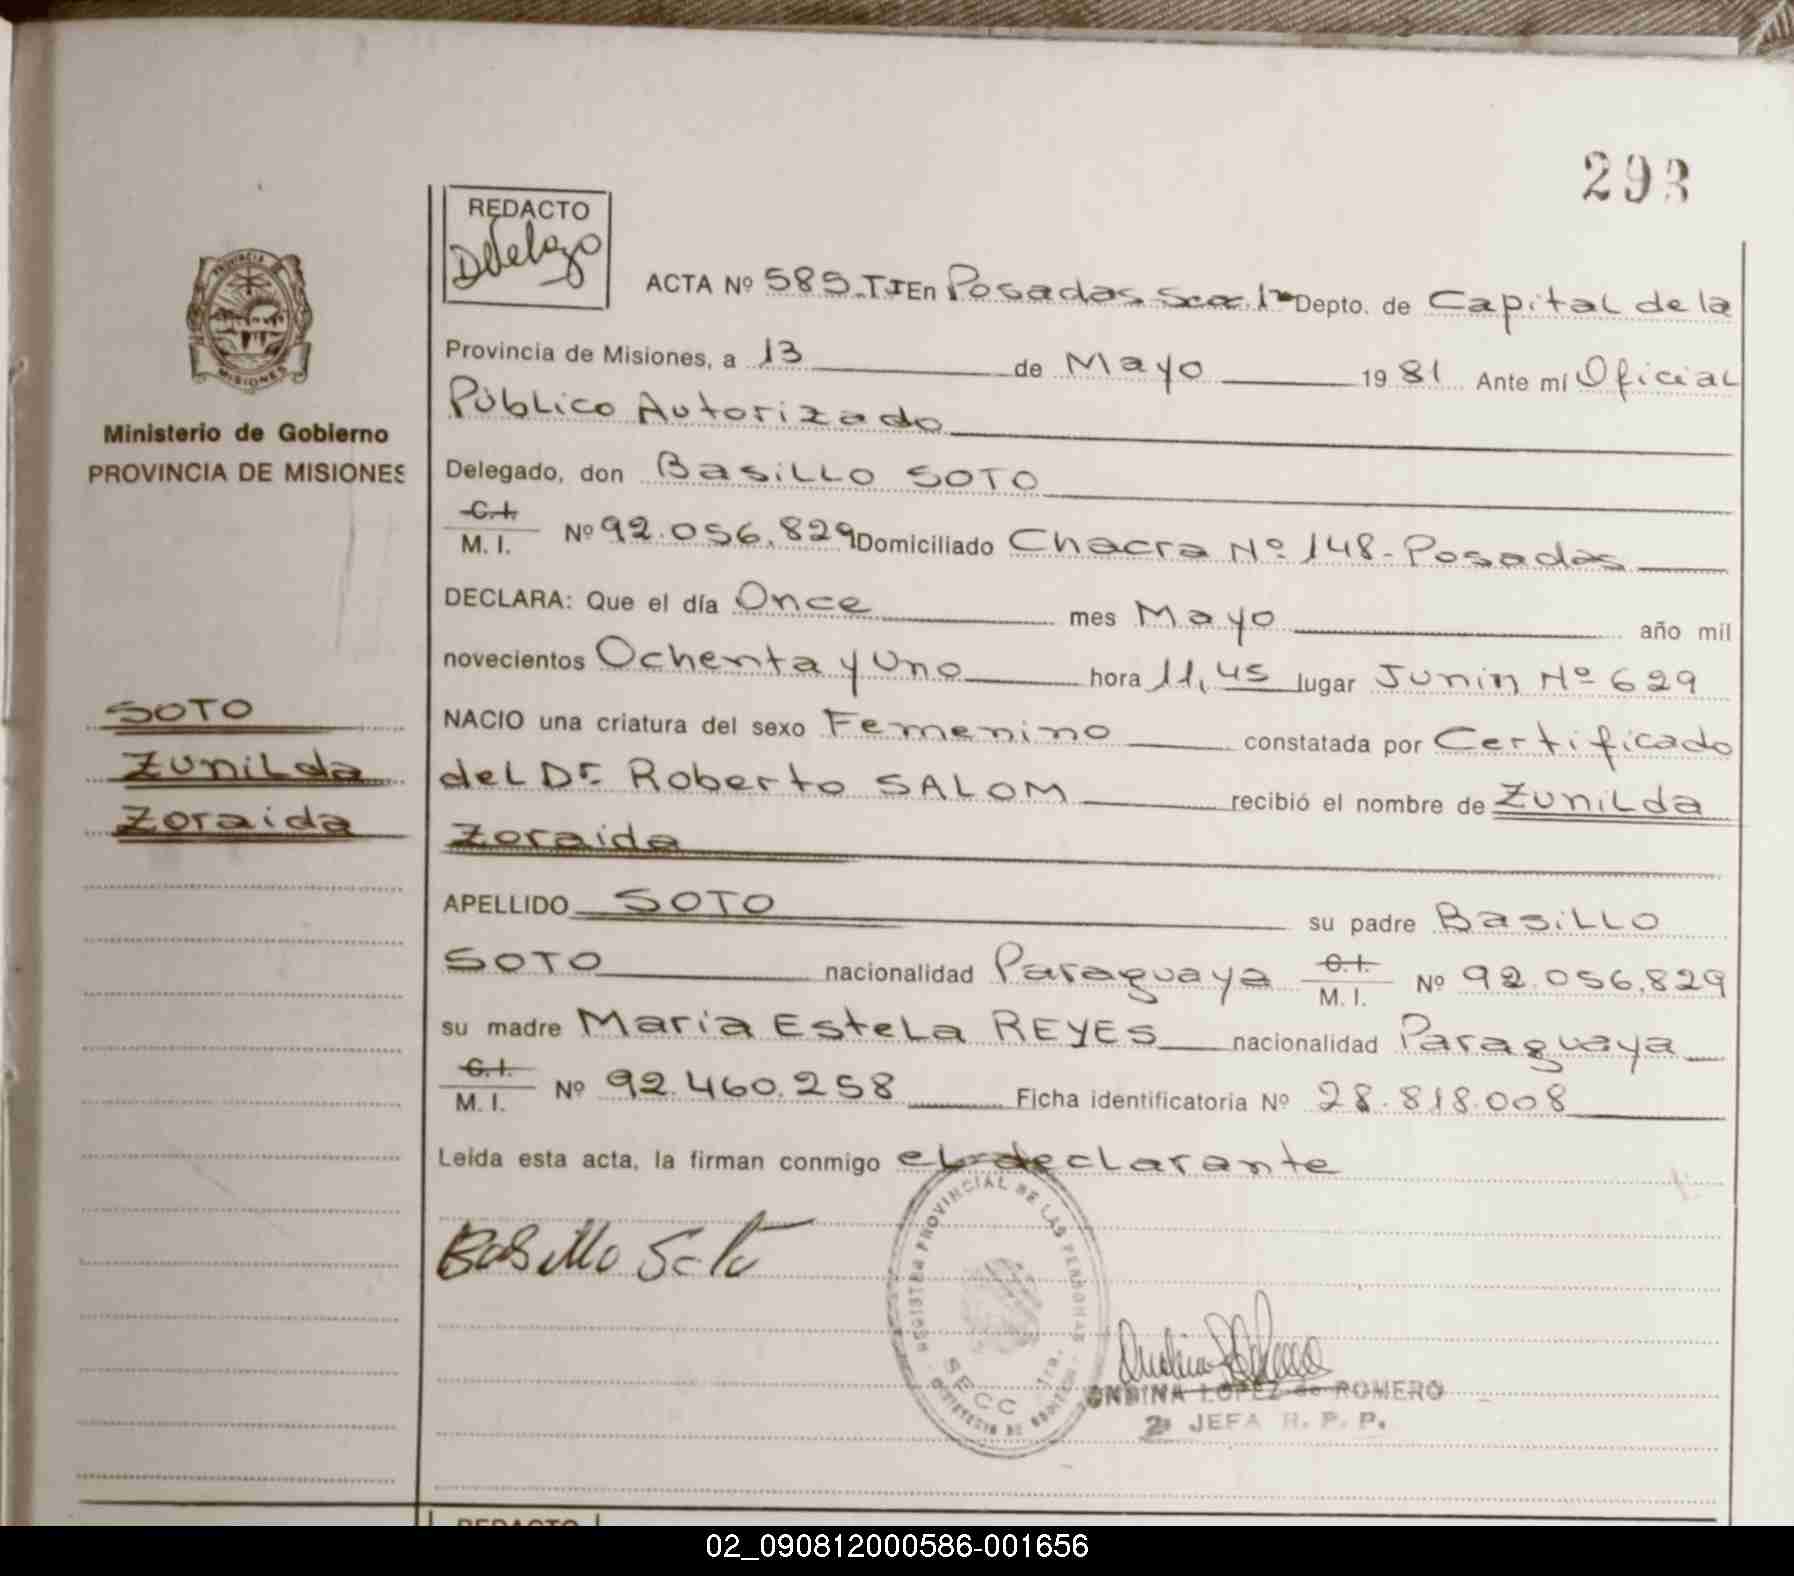 293
REDACTO
ACTA Nº 585.TI En Posadas Secc. 1ª Depto. de Capital de la
Provincia de Misiones, a 13 de Mayo 1981 Ante mí Oficial
Público Autorizado
Delegado, don Basillo SOTO
C.I.
M. I. Nº 92.056.829 Domiciliado Chacra Nº 148-Posadas
DECLARA: Que el día Once mes Mayo año mil
novecientos Ochenta y Uno hora 11,45 lugar Junin Nº 629
NACIO una criatura del sexo Femenino constatada por Certificado
del Dr. Roberto SALOM recibió el nombre de Zunilda
Zoraida
APELLIDO SOTO su padre Basillo
SOTO nacionalidad Paraguaya C.I. M. I. Nº 92.056.829
su madre Maria Estela REYES nacionalidad Paraguaya
C.I.
M. I. Nº 92.460.258 Ficha identificatoria Nº 28.818.008
Leída esta acta, la firman conmigo el declarante
Basillo Soto
REGISTRO PROVINCIAL DE LAS PERSONAS
SECC 1ra.
ONDINA LOPEZ de ROMERO
2ª JEFA R. P. P.
PROVINCIA DE
MISIONES
Ministerio de Gobierno
PROVINCIA DE MISIONES
SOTO
Zunilda
Zoraida
REDACTO
02_090812000586-001656